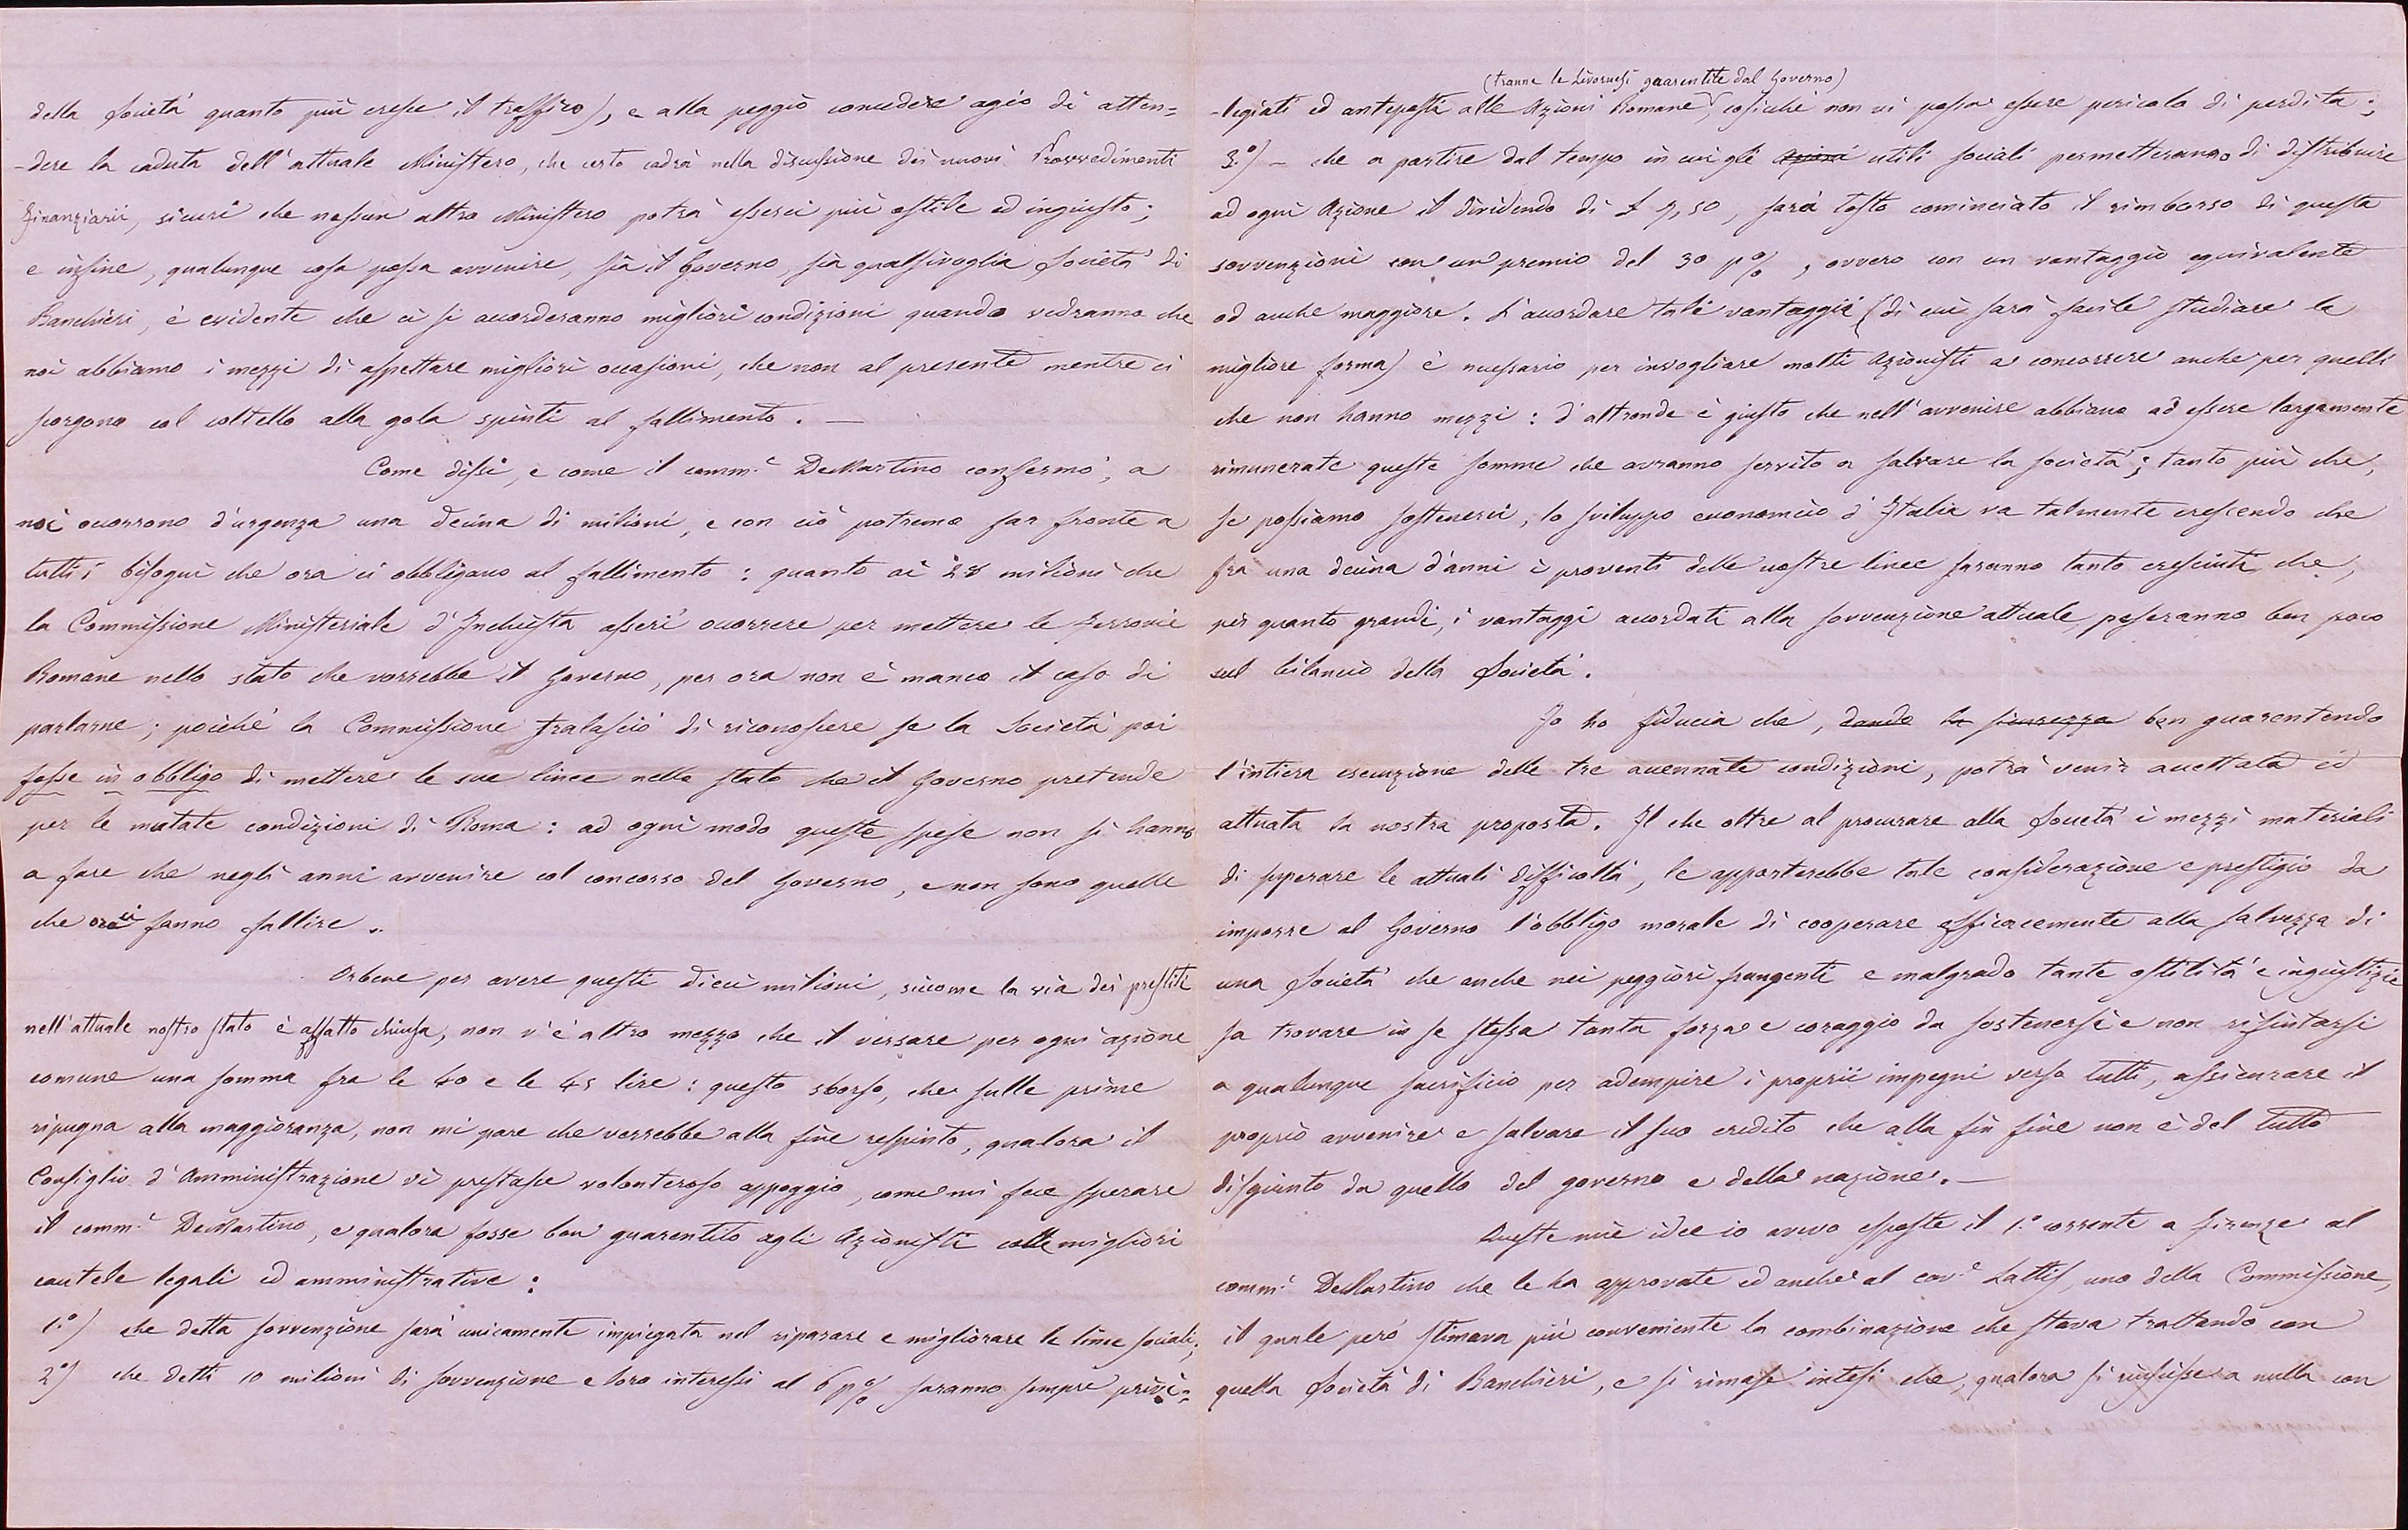 della Società quanto più cresce il traffico), e alla peggio concedere agio di atten=
-dere la caduta dell'attuale Ministero, che certo cadrà nella discussione dei nuovi Provvedimenti
Finanziarii, sicuri che nessun altro Ministero potrà esserci più ostile ed ingiusto;
e infine, qualunque cosa possa avvenire, sia il Governo, sia qualsivoglia Società di
Banchieri, è evidente che ci si accorderanno migliori condizioni quando vedranno che
noi abbiamo i mezzi di aspettare migliori occasioni, che non al presente mentre ci
scorgono col coltello alla gola spinti al fallimento. —
Come dissi, e come il comm.e DeMartino confermò, a
noi occorrono d'urgenza una decina di milioni, e con ciò potremo far fronte a
tutti i bisogni che ora ci obbligano al fallimento: quanto ai 28 milioni che
la Commissione Ministeriale d'Inchiesta asserì occorrere per mettere le Ferrovie
Romane nello stato che vorrebbe il Governo, per ora non è manco il caso di
parlarne; poiché la Commissione tralasciò di riconoscere se la Società poi
fosse in obbligo di mettere le sue linee nello stato che il Governo pretende
per le mutate condizioni di Roma: ad ogni modo queste spese non si hanno
a fare che negli anni avvenire col concorso del Governo, e non sono quelle
che ora ci fanno fallire.
Orbene per avere questi dieci milioni, siccome la via dei prestiti
nell'attuale nostro stato è affatto chiusa, non v'è altro mezzo che il versare per ogni azione
comune una somma fra le 40 e le 45 lire: questo sborso, che sulle prime
ripugna alla maggioranza, non mi pare che verrebbe alla fine respinto, qualora il
Consiglio d'Amministrazione vi prestasse volonteroso appoggio, come mi fece sperare
il comm.e DeMartino, e qualora fosse ben guarentito agli Azionisti colle migliori
cautele legali ed amministrative:
1.o) che detta sovvenzione sarà unicamente impiegata nel riparare e migliorare le linee sociali;
2o) che detti 10 milioni di sovvenzione e loro interessi al 6 p% saranno sempre privi=
(tranne le Livornesi guarentite dal Governo)
-legiati ed anteposti alle Azioni Romane, cosicché non vi possa essere pericolo di perdita;
3.o) – che a partire dal tempo in cui gli utili sociali permetteranno di distribuire
ad ogni Azione il dividendo di £ 7,50, sarà tosto cominciato il rimborso di questa
sovvenzioni con un premio del 30 p%, ovvero con un vantaggio equivalente
od anche maggiore. L'accordare tali vantaggi (di cui sarà facile studiare la
migliore forma) è necessario per invogliare molti Azionisti a concorrere anche per quelli
che non hanno mezzi: d'altronde è giusto che nell'avvenire abbiano ad essere largamente
rimunerate queste somme che avranno servito a salvare la società; tanto più che,
se possiamo sostenerci, lo sviluppo economico d'Italia va talmente crescendo che
fra una decina d'anni i proventi delle nostre linee saranno tanto cresciuti che,
per quanto grandi, i vantaggi accordati alla sovvenzione attuale, peseranno ben poco
sul bilancio della Società.
Io ho fiducia che, dando la sicurezza ben guarentendo
l'intiera esecuzione delle tre accennate condizioni, potrà venir accettata ed
attuata la nostra proposta. Il che oltre al procurare alla Società i mezzi materiali
di superare le attuali difficoltà, le apporterebbe tale considerazione e prestigio da
imporre al Governo l'obbligo morale di cooperare efficacemente alla salvezza di
una Società che anche nei peggiori frangenti e malgrado tante ostilità e ingiustizie
sa trovare in se stessa tanta forza e coraggio da sostenersi e non rifiutarsi
a qualunque sacrificio per adempire i proprii impegni verso tutti, assicurare il
proprio avvenire e salvare il suo credito che alla fin fine non è del tutto
disgiunto da quello del governo e della nazione. —
Queste mie idee io avevo esposte il 1.o corrente a Firenze al
comm.e DeMartino che le ha approvate ed anche al cav.e Lattis, uno della Commissione,
il quale però stimava più conveniente la combinazione che stava trattando con
quella Società di Banchieri, e si rimase intesi che, qualora si riuscisse a nulla con